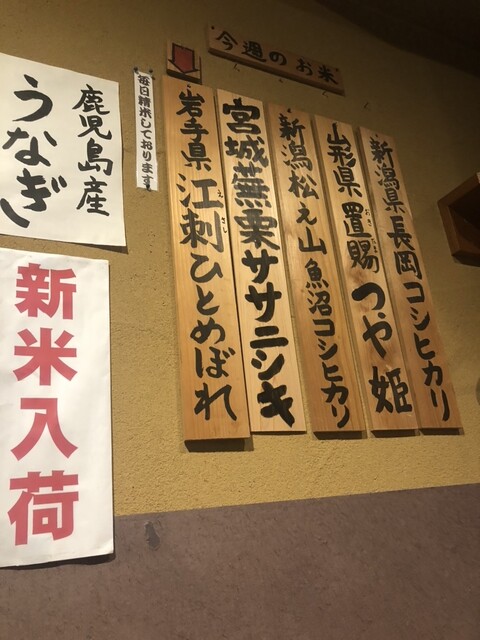 今週のお米
新潟県長岡コシヒカリ
山形県置賜つや姫
おきたま
新潟松之山魚沼コシヒカリ
宮城蕪栗ササニシキ
岩手県江刺ひとめぼれ
えさし
毎日精米しております
鹿児島産
うなぎ
新米入荷